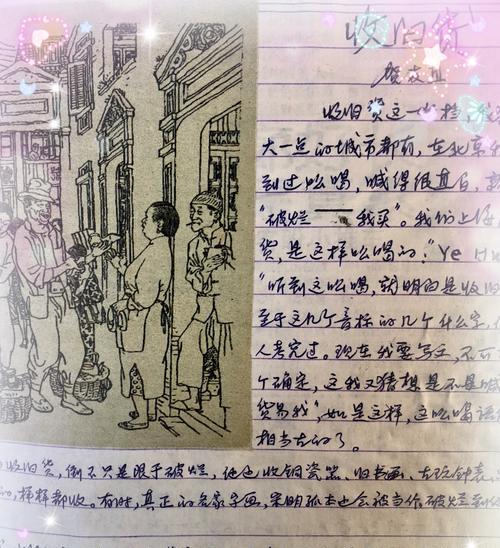 收旧货
贺友直
收旧货这一行档,
大一点的城市都有,在北京
到过吆喝,喊得很直白,
“破烂——我买”。我们上海
货,是这样吆喝的:“Ye H
”听到这吆喝,就明白是收旧
至于这几个音标的几个什么字,
人考究过。现在我要写它,不可
个确定,这我又猜想是不是
贸易我”,如是这样,这吆喝
相当古的了。
收旧货,倒不只是限于破烂,他也收铜瓷器、旧书画、古玩钟表
样样都收。有时,真正的名家字画,宋明孤本也会被当作破烂到